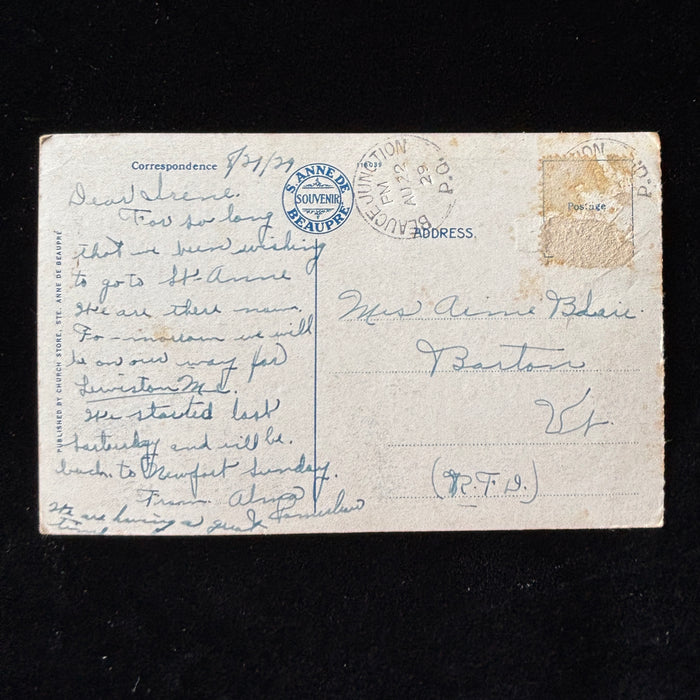 Correspondence 8/21/29
Dear Irene.
For so long
that we been wishing
to go to St. Anne
We are there now.
To-morrow we will
be on our way for
Lewiston Me.
We started last
Saturday and will be.
back to Newport Sunday.
From Alma
We are having a grand
time
PUBLISHED BY CHURCH STORE, STE. ANNE DE BEAUPRÉ
S. ANNE DE
SOUVENIR
BEAUPRÉ
BEAUCE JUNCTION P.Q.
PM
AU 22
29
ADDRESS.
Postage
Mrs Aime Blair.
Barton
Vt.
(R.F.D.)